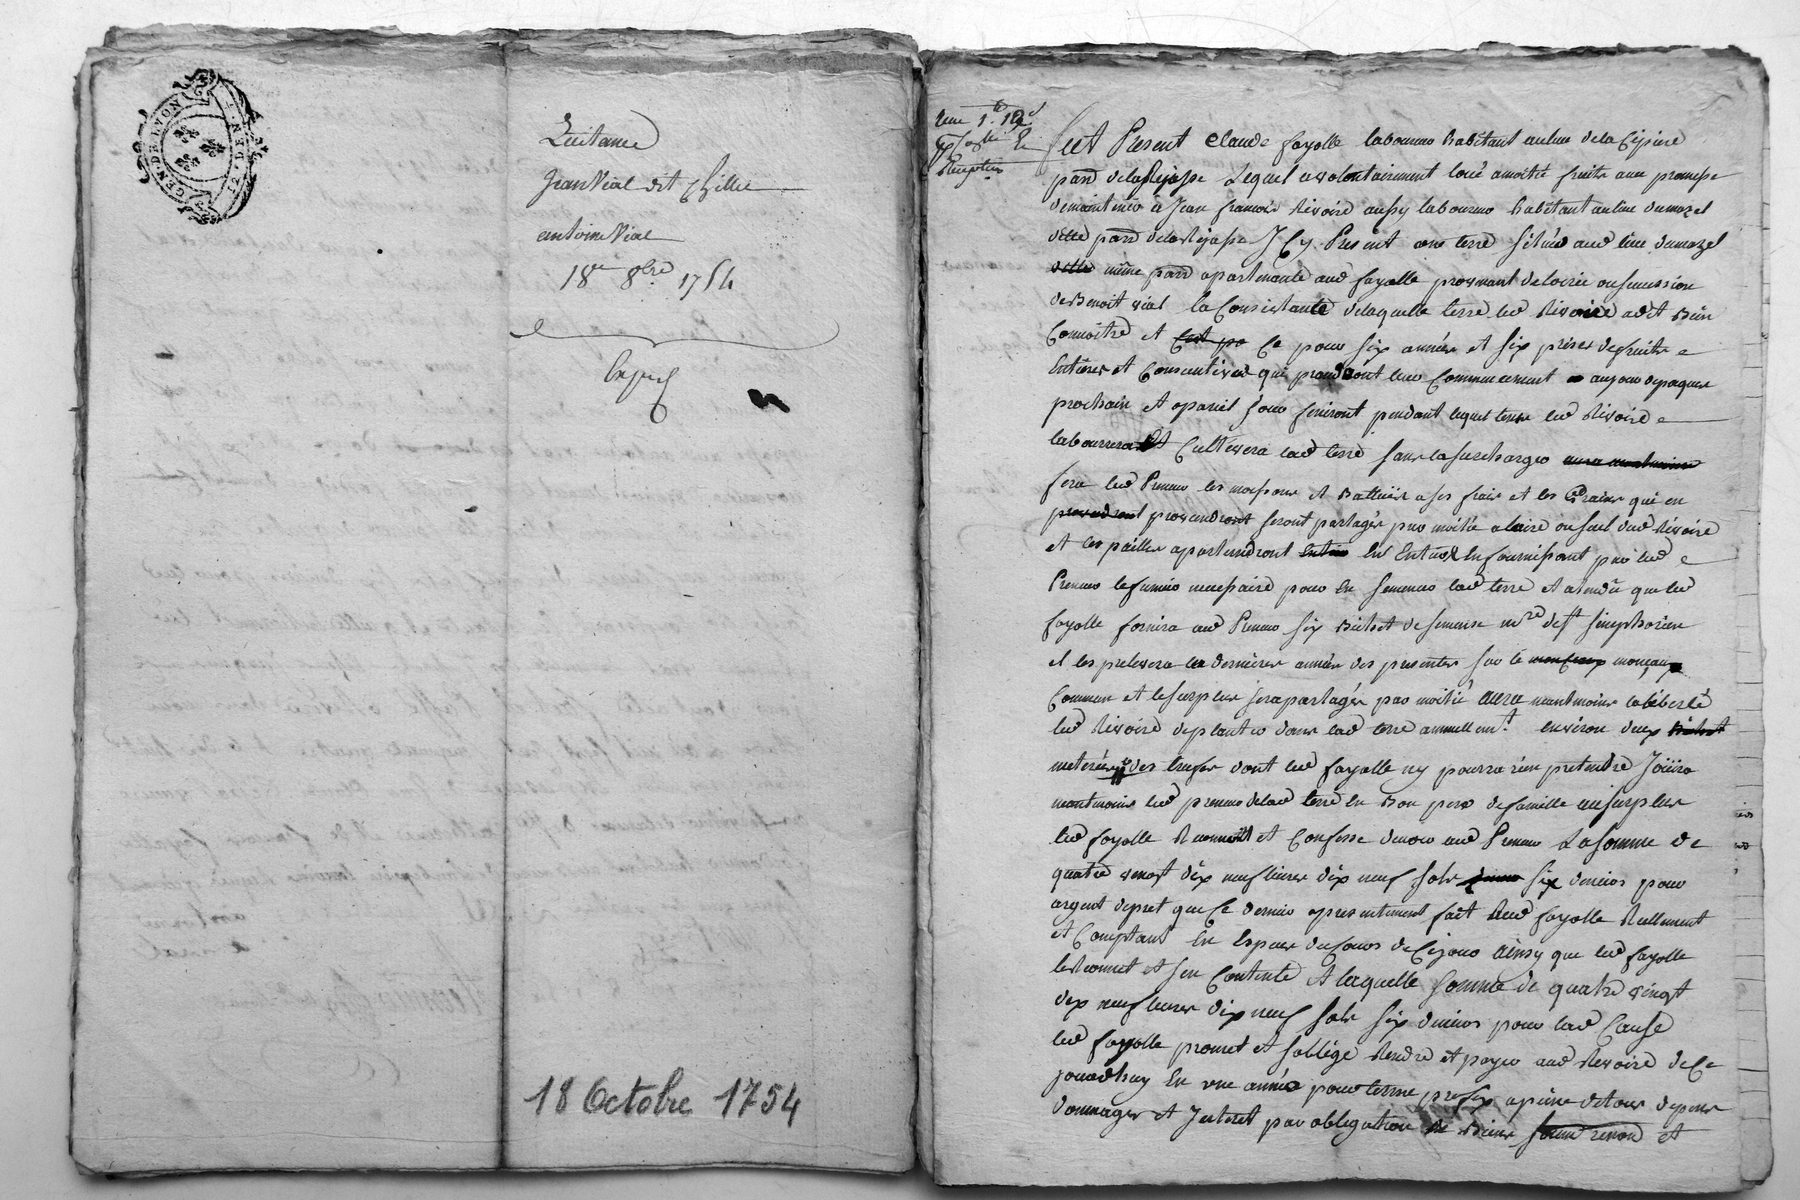 GEN. DE LYON
Quitance
Jean Vial dit
antoine Vial
18e 8bre 1754
18 Octobre 1754
fut Present Claude fayolle laboureur habitant au lieu de la
parr de la Rejasse Lequel a volontairement loué a moitié fruits avec promesse
de maintenir a Jean francois Rivoire aussy laboureur habitant au lieu du mazel
parr de la Rejasse Icy Present une terre située aud lieu du mazel
même parr apartenante aud fayolle provenant de loirie ou sucession
de Benoit vial la Consistance de laquelle terre led Rivoire a dit Bien
Connoitre et Ce pour six années et six prises de fruits
Entieres et Consentives qui prendront leur Commencement au jour de paques
prochain et a pareil jour finiront pendant lequel tems led Rivoire
labourera et Cultivera lad terre sans la surcharger
fera led Preneur les moissons et Battües a ses frais et les Grains qui en
proviendront seront partagés par moitié a laire ou suel dud Rivoire
et les pailles apartiendront En Entier En fournissant par led
Preneur le fumier necessaire pour En semencer lad terre et atendu que led
fayolle fornira aud Preneur six Bichet de semence mre de st simphorien
et les prelevera les dernieres années des presentes sur le monceaux
Commun et le surplus sera partagér par moitié aura neantmoins la liberté
led Rivoire de planter dans lad terre annuellemt. Environ deux
meterées des trufes dont led fayolle ny pourra rien pretendre Joüira
neantmoins led preneur de lad terre En Bon pere de famille au surplus
led fayolle Reconnoit et Confesse devoir aud Preneur La somme de
quatre vingt dix neuf livres dix neuf sols six deniers pour
argent de pret que Ce dernier a presentement fait aud fayolle Reellement
et Comptant En Espces du Cours de Ce jour ainsy que led fayolle
le Reconnet et sen Contente et laquelle somme de quatre vingt
dix neuf livres dix neuf sols six deniers pour lad Cause
led fayolle promet et soblige Rendre et payer aud Rivoire de Ce
jourdhuy En une année pour terme prefix a peine de tous depens
dommages et Interet par obligation de Biens et